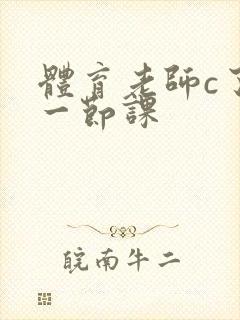 體育老師c了
一節課
皖南牛二